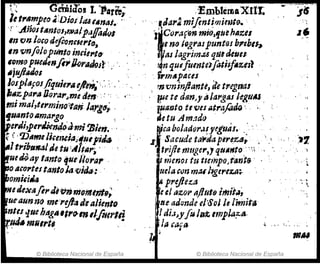 Gemidos I. Parte,
te trampeo à Dios las canas.
Años tantos, mal passados
en vn loco desconcierto,
en vn solo punto incierto
como pueden ser llorados?
ajustados
los plaços siquiera esten,
haz para llorar, me den
mi mal, termino tan largo,
quanto amargo
perdi, perdiendo à mi Bien.
Dame licencia, que pida
al tribunal de tu Altar,
que dò ay tanto que llorar
no acortes tanto la vida:
homicida
me dexa ser de vn momento,
que aun no me resta de aliento
antes que haga otro en el sufrir
ruda muerte
Emblema XIII. 36
darà mi sentimiento.
Coraçon mio, que hazes 16
no logras puntos bribes,
las lagrimas que deues
en que fuentes satisfazes?
firma pazes
n vn instante, de treguas
que te dan, y a largas leguas
quanto te ves atrasado
de tu Amado
pica boladoras yeguas.
Sacude tarda pereza, 17
triste muger, y quanto
menos tu tiempo, tanto
buela con mas ligereza:
presteza
el azor assuto imita,
que adonde el Sol le limita
dia, y su luz emplaza
la caça
mas
© Biblioteca Nacional de España
© Biblioteca Nacional de España